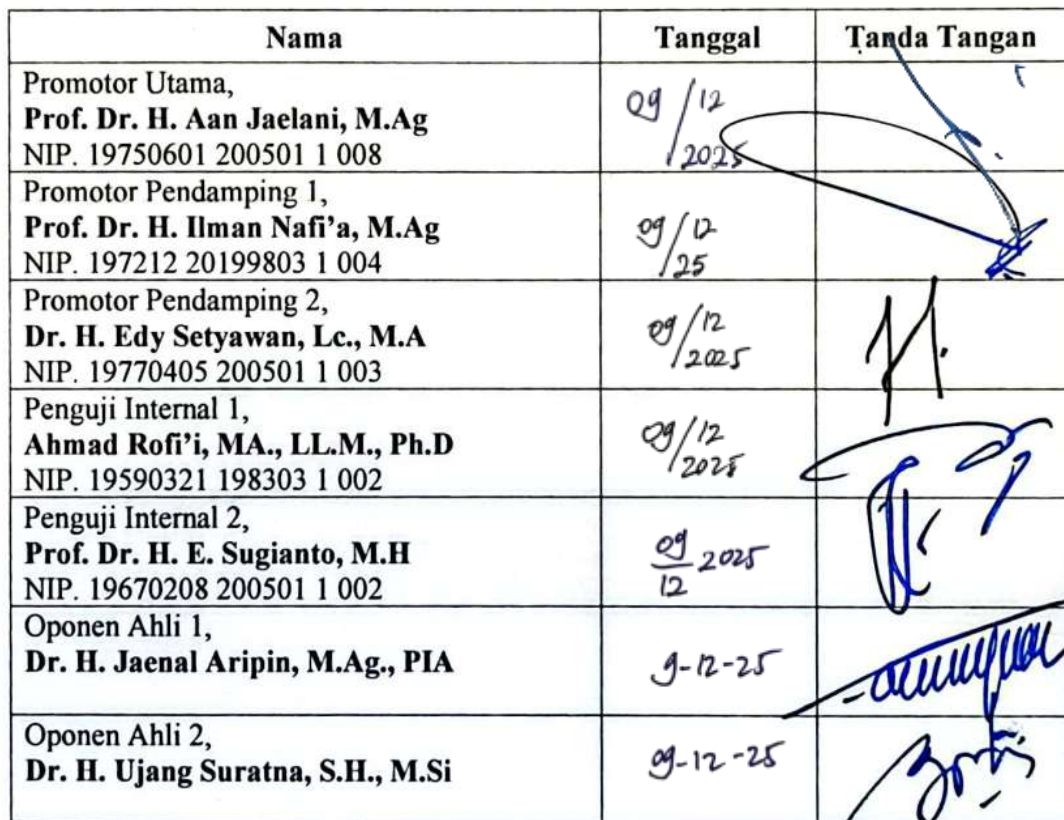 Nama Tanggal Tanda Tangan
Promotor Utama,
Prof. Dr. H. Aan Jaelani, M.Ag
NIP. 19750601 200501 1 008
09/12
2025
Promotor Pendamping 1,
Prof. Dr. H. Ilman Nafi'a, M.Ag
NIP. 197212 20199803 1 004
09/12
25
Promotor Pendamping 2,
Dr. H. Edy Setyawan, Lc., M.A
NIP. 19770405 200501 1 003
09/12
2025
Penguji Internal 1,
Ahmad Rofi'i, MA., LL.M., Ph.D
NIP. 19590321 198303 1 002
09/12
2025
Penguji Internal 2,
Prof. Dr. H. E. Sugianto, M.H
NIP. 19670208 200501 1 002
09
12 2025
Oponen Ahli 1,
Dr. H. Jaenal Aripin, M.Ag., PIA
9-12-25
Oponen Ahli 2,
Dr. H. Ujang Suratna, S.H., M.Si
09-12-25